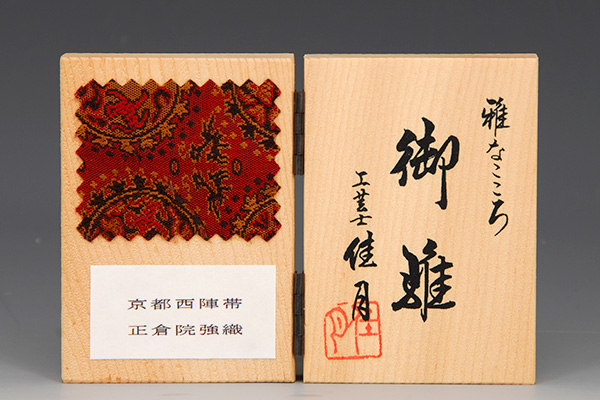 京都西陣帯
正倉院強織
雅なこころ
御雛
工芸士 佳月